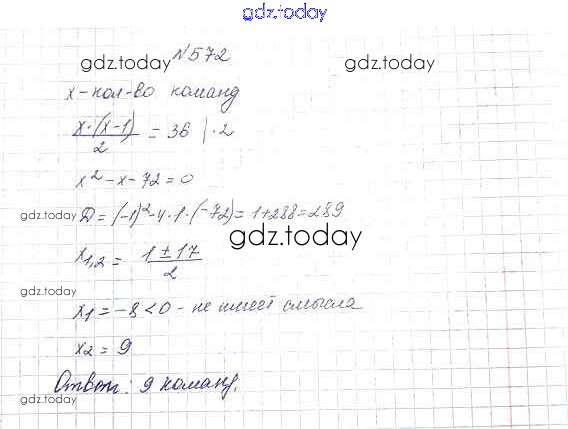 gdz.today
№572
gdz.today
gdz.today
x - кол-во команд
x·(x-1)/2 = 36 |·2
x² - x - 72 = 0
gdz.today
D = (-1)² - 4·1·(-72) = 1+288=289
gdz.today
x1,2 = 1 ± 17/2
gdz.today
x1 = -8 < 0 - не имеет смысла
x2 = 9
Ответ: 9 команд.
gdz.today
gdz.today